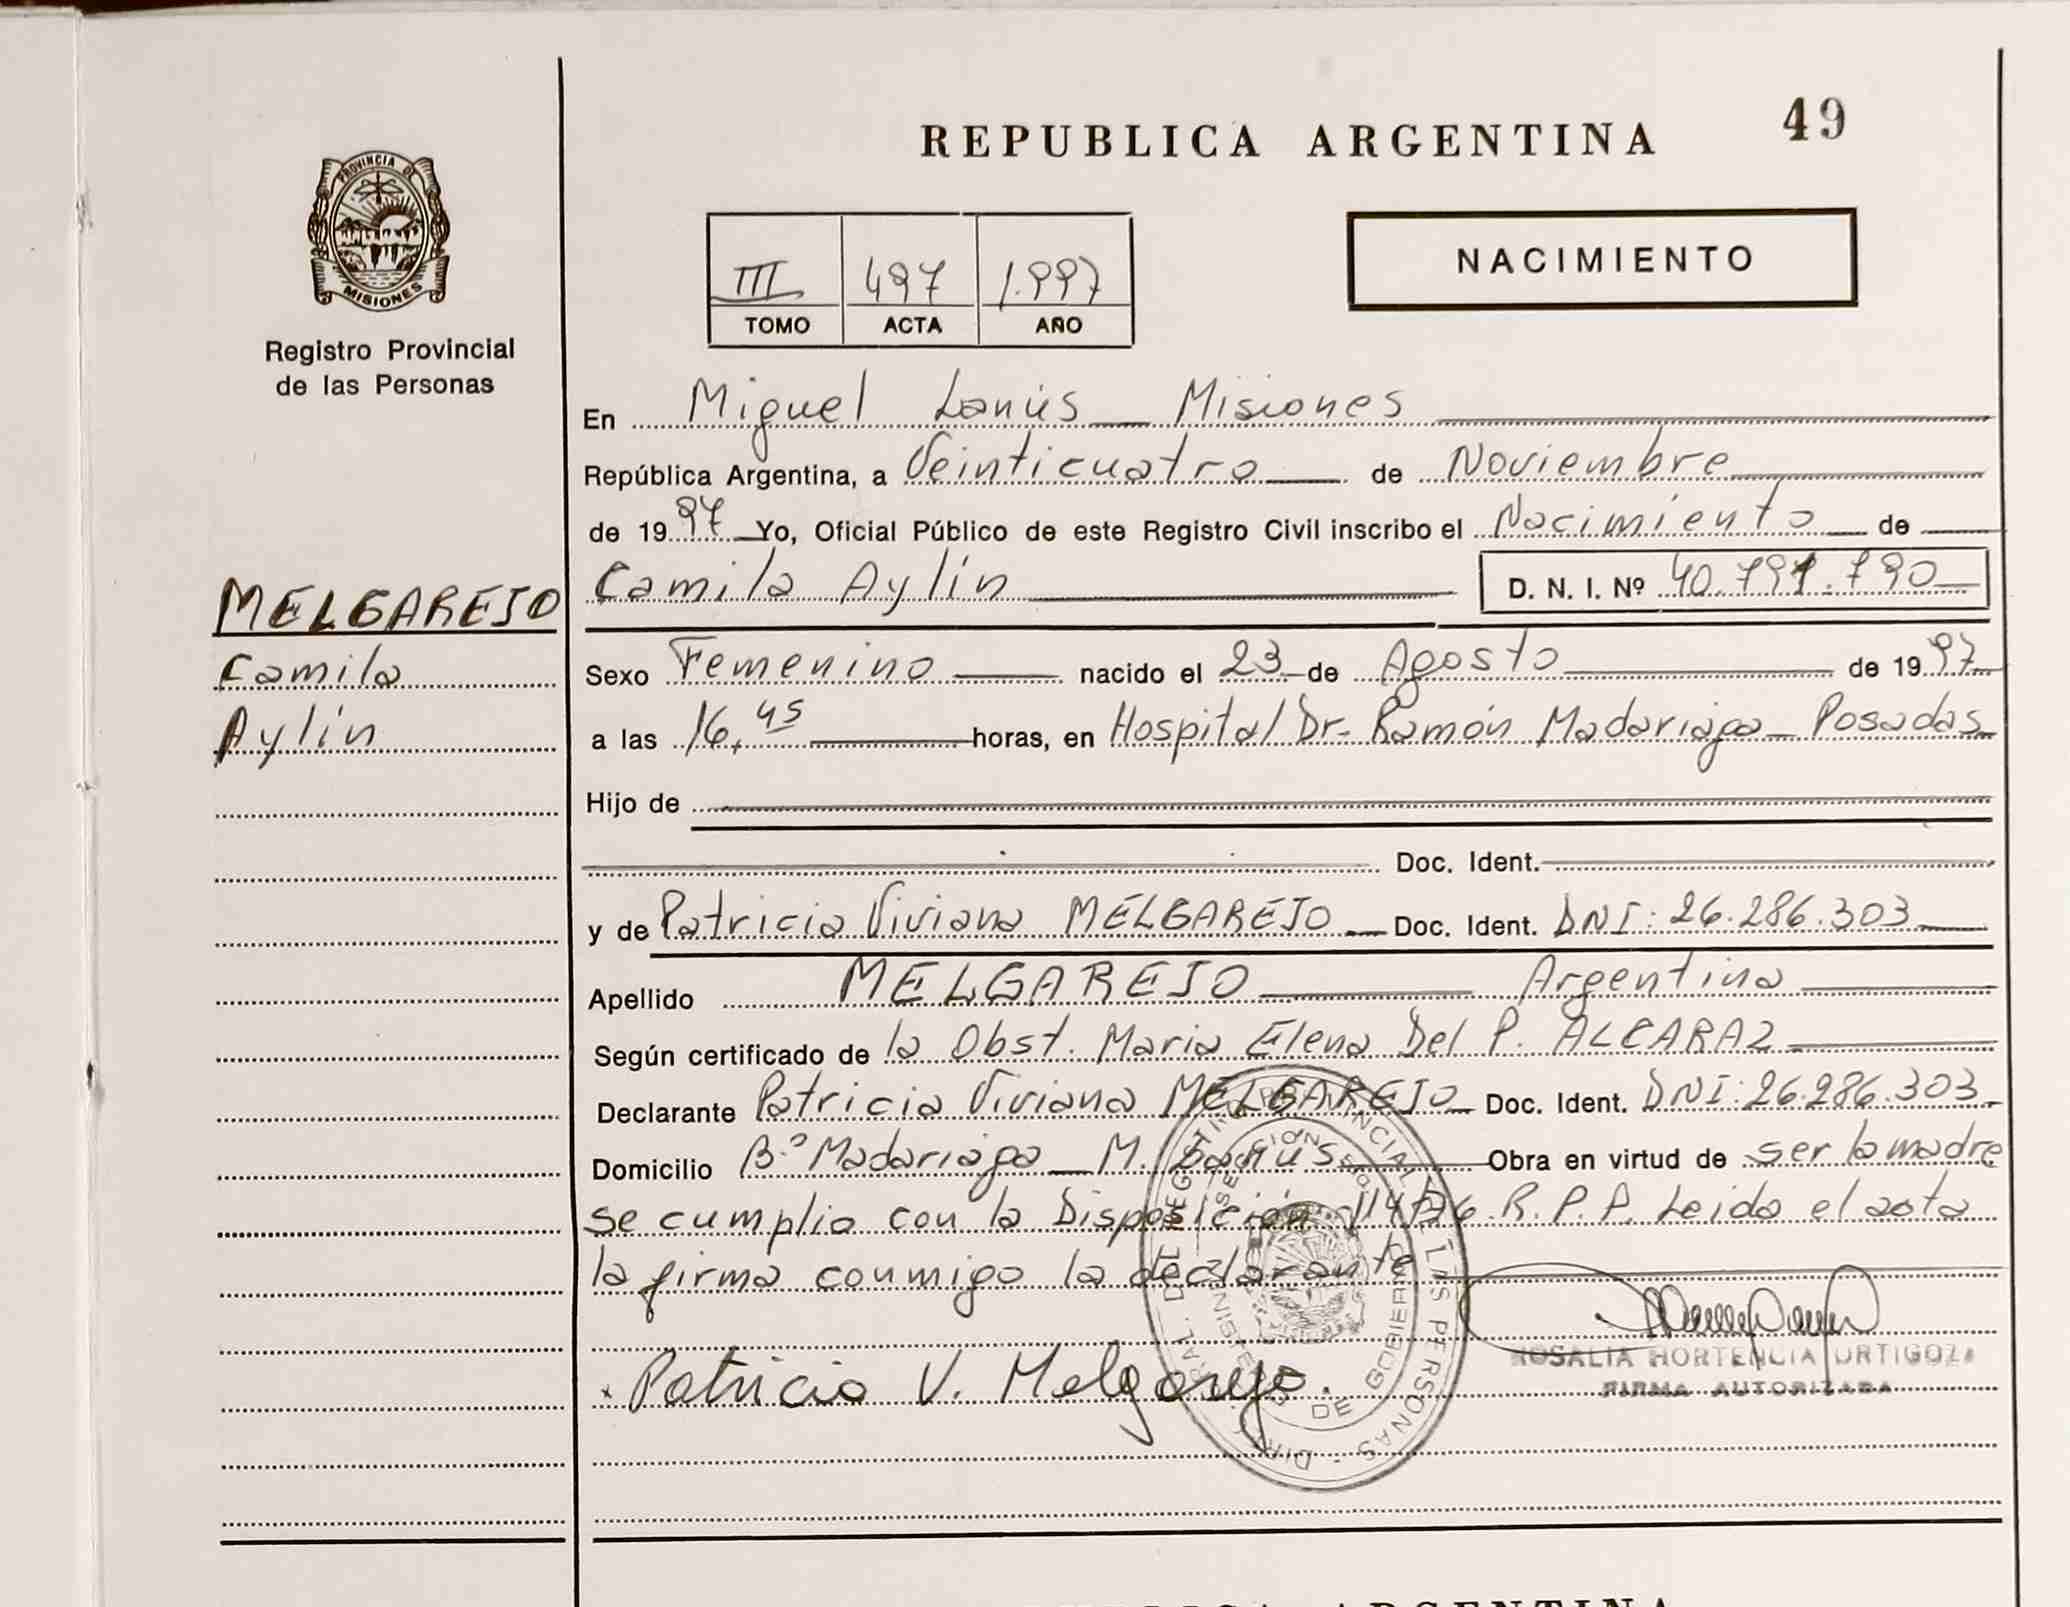 49
REPUBLICA ARGENTINA
PROVINCIA DE
MISIONES
Registro Provincial
de las Personas
NACIMIENTO
III 497 1.997
TOMO ACTA AÑO
En Miguel Lanús Misiones
República Argentina, a Veinticuatro de Noviembre
de 1997 Yo, Oficial Público de este Registro Civil inscribo el Nacimiento de
MELGAREJO
Camila
Aylín
Camila Aylín D. N. I. Nº 40.791.790
Sexo Femenino nacido el 23 de Agosto de 1997
a las 16,45 horas, en Hospital Dr. Ramón Madariaga Posadas
Hijo de
Doc. Ident.
y de Patricia Viviana MELGAREJO Doc. Ident. DNI: 26.286.303
Apellido MELGAREJO Argentina
Según certificado de la Obst. Maria Elena Del P. ALCARAZ
Declarante Patricia Viviana MELGAREJO Doc. Ident. DNI: 26.286.303
Domicilio B.º Madariaga M. Lanús Obra en virtud de ser la madre
se cumplio con la Disposición 114/96 R. P. P. Leida el acta
la firma conmigo la declarante
Patricia V. Melgarejo.
ROSALIA HORTENCIA URTIGOZA
FIRMA AUTORIZADA
REPUBLICA ARGENTINA